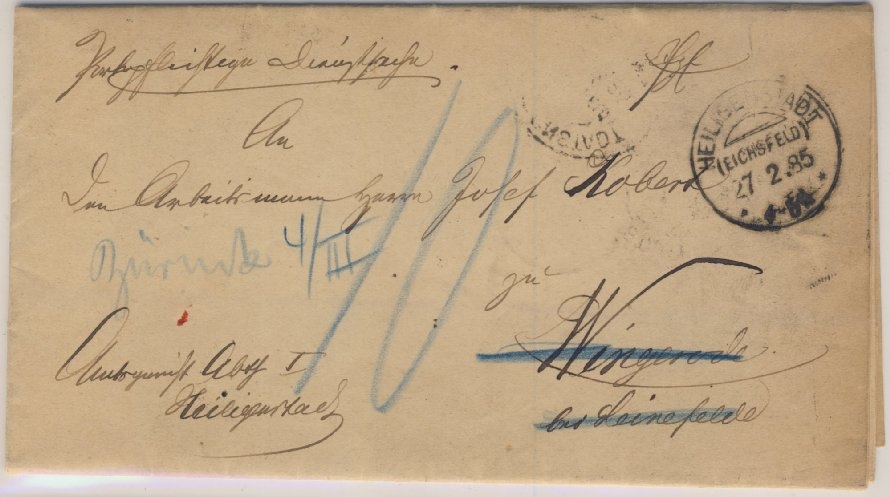 Portopflichtige Dienstsache.
An
Den Arbeitsmann Herrn Josef Kobert
zu
Wingerode
bei Leinefelde
Zurück 4/III
10
Amtsgericht Abth I
Heiligenstadt
HEILIGENSTADT
(EICHSFELD)
27 2.85